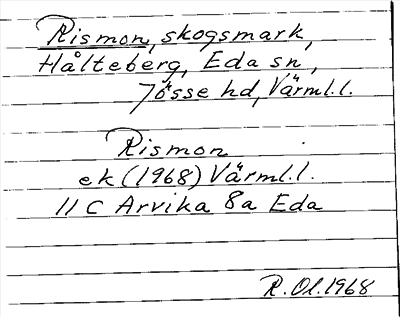 Rismon, skogsmark,
Hålteberg, Eda sn,
Jösse hd, Värml.l.
Rismon
ek (1968) Värml.l.
11 C Arvika 8a Eda
R.Ol.1968